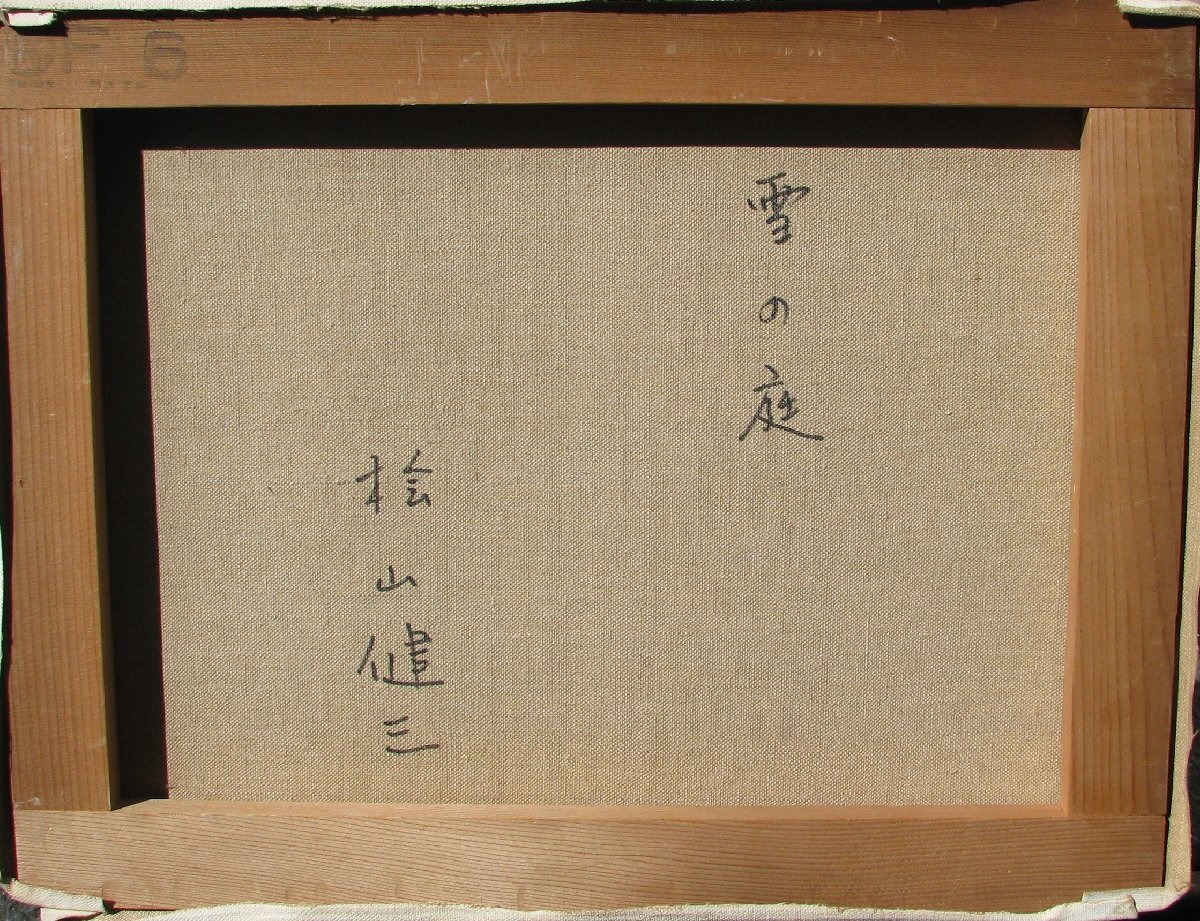 F 6
雪の庭
桧山健三